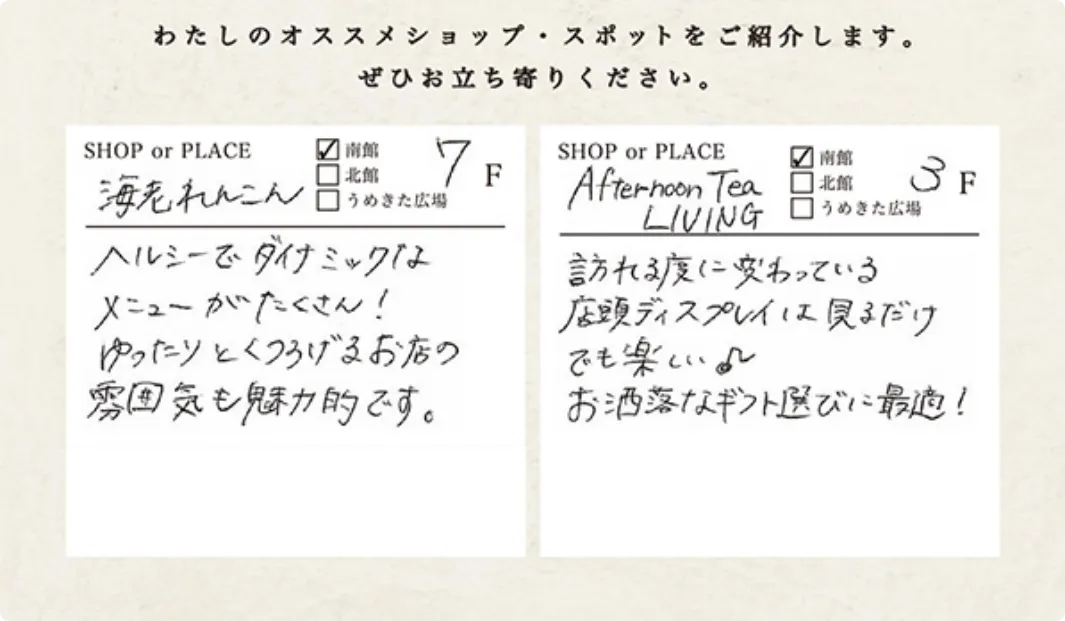 わたしのオススメショップ・スポットをご紹介します。
ぜひお立ち寄りください。
SHOP or PLACE
海老れんこん
☑ 南館
☐ 北館
☐ うめきた広場
7 F
ヘルシーでダイナミックな
メニューがたくさん！
ゆったりとくつろげるお店の
雰囲気も魅力的です。
SHOP or PLACE
Afternoon Tea
LIVING
☑ 南館
☐ 北館
☐ うめきた広場
3 F
訪れる度に変わっている
店頭ディスプレイは見るだけ
でも楽しい♪
お洒落なギフト選びに最適！